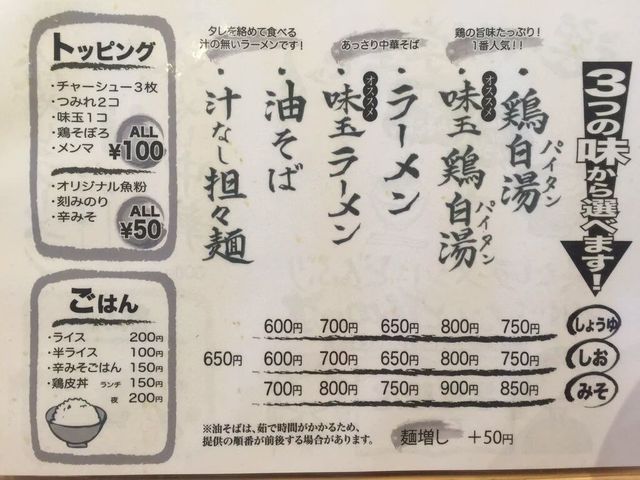 3つの味から選べます!
鶏の旨味たっぷり!
1番人気!!
・鶏白湯
パイタン
オススメ
・味玉鶏白湯
パイタン
あっさり中華そば
・ラーメン
オススメ
・味玉ラーメン
タレを絡めて食べる
汁の無いラーメンです!
・油そば
・汁なし担々麺
600円 700円 650円 800円 750円 しょうゆ
650円 600円 700円 650円 800円 750円 しお
700円 800円 750円 900円 850円 みそ
※油そばは、茹で時間がかかるため、
提供の順番が前後する場合があります。
麺増し +50円
トッピング
・チャーシュー3枚
・つみれ2コ
・味玉1コ
・鶏そぼろ
・メンマ
ALL
¥100
・オリジナル魚粉
・刻みのり
・辛みそ
ALL
¥50
ごはん
・ライス 200円
・半ライス 100円
・辛みそごはん 150円
・鶏皮丼 ランチ 150円
夜 200円